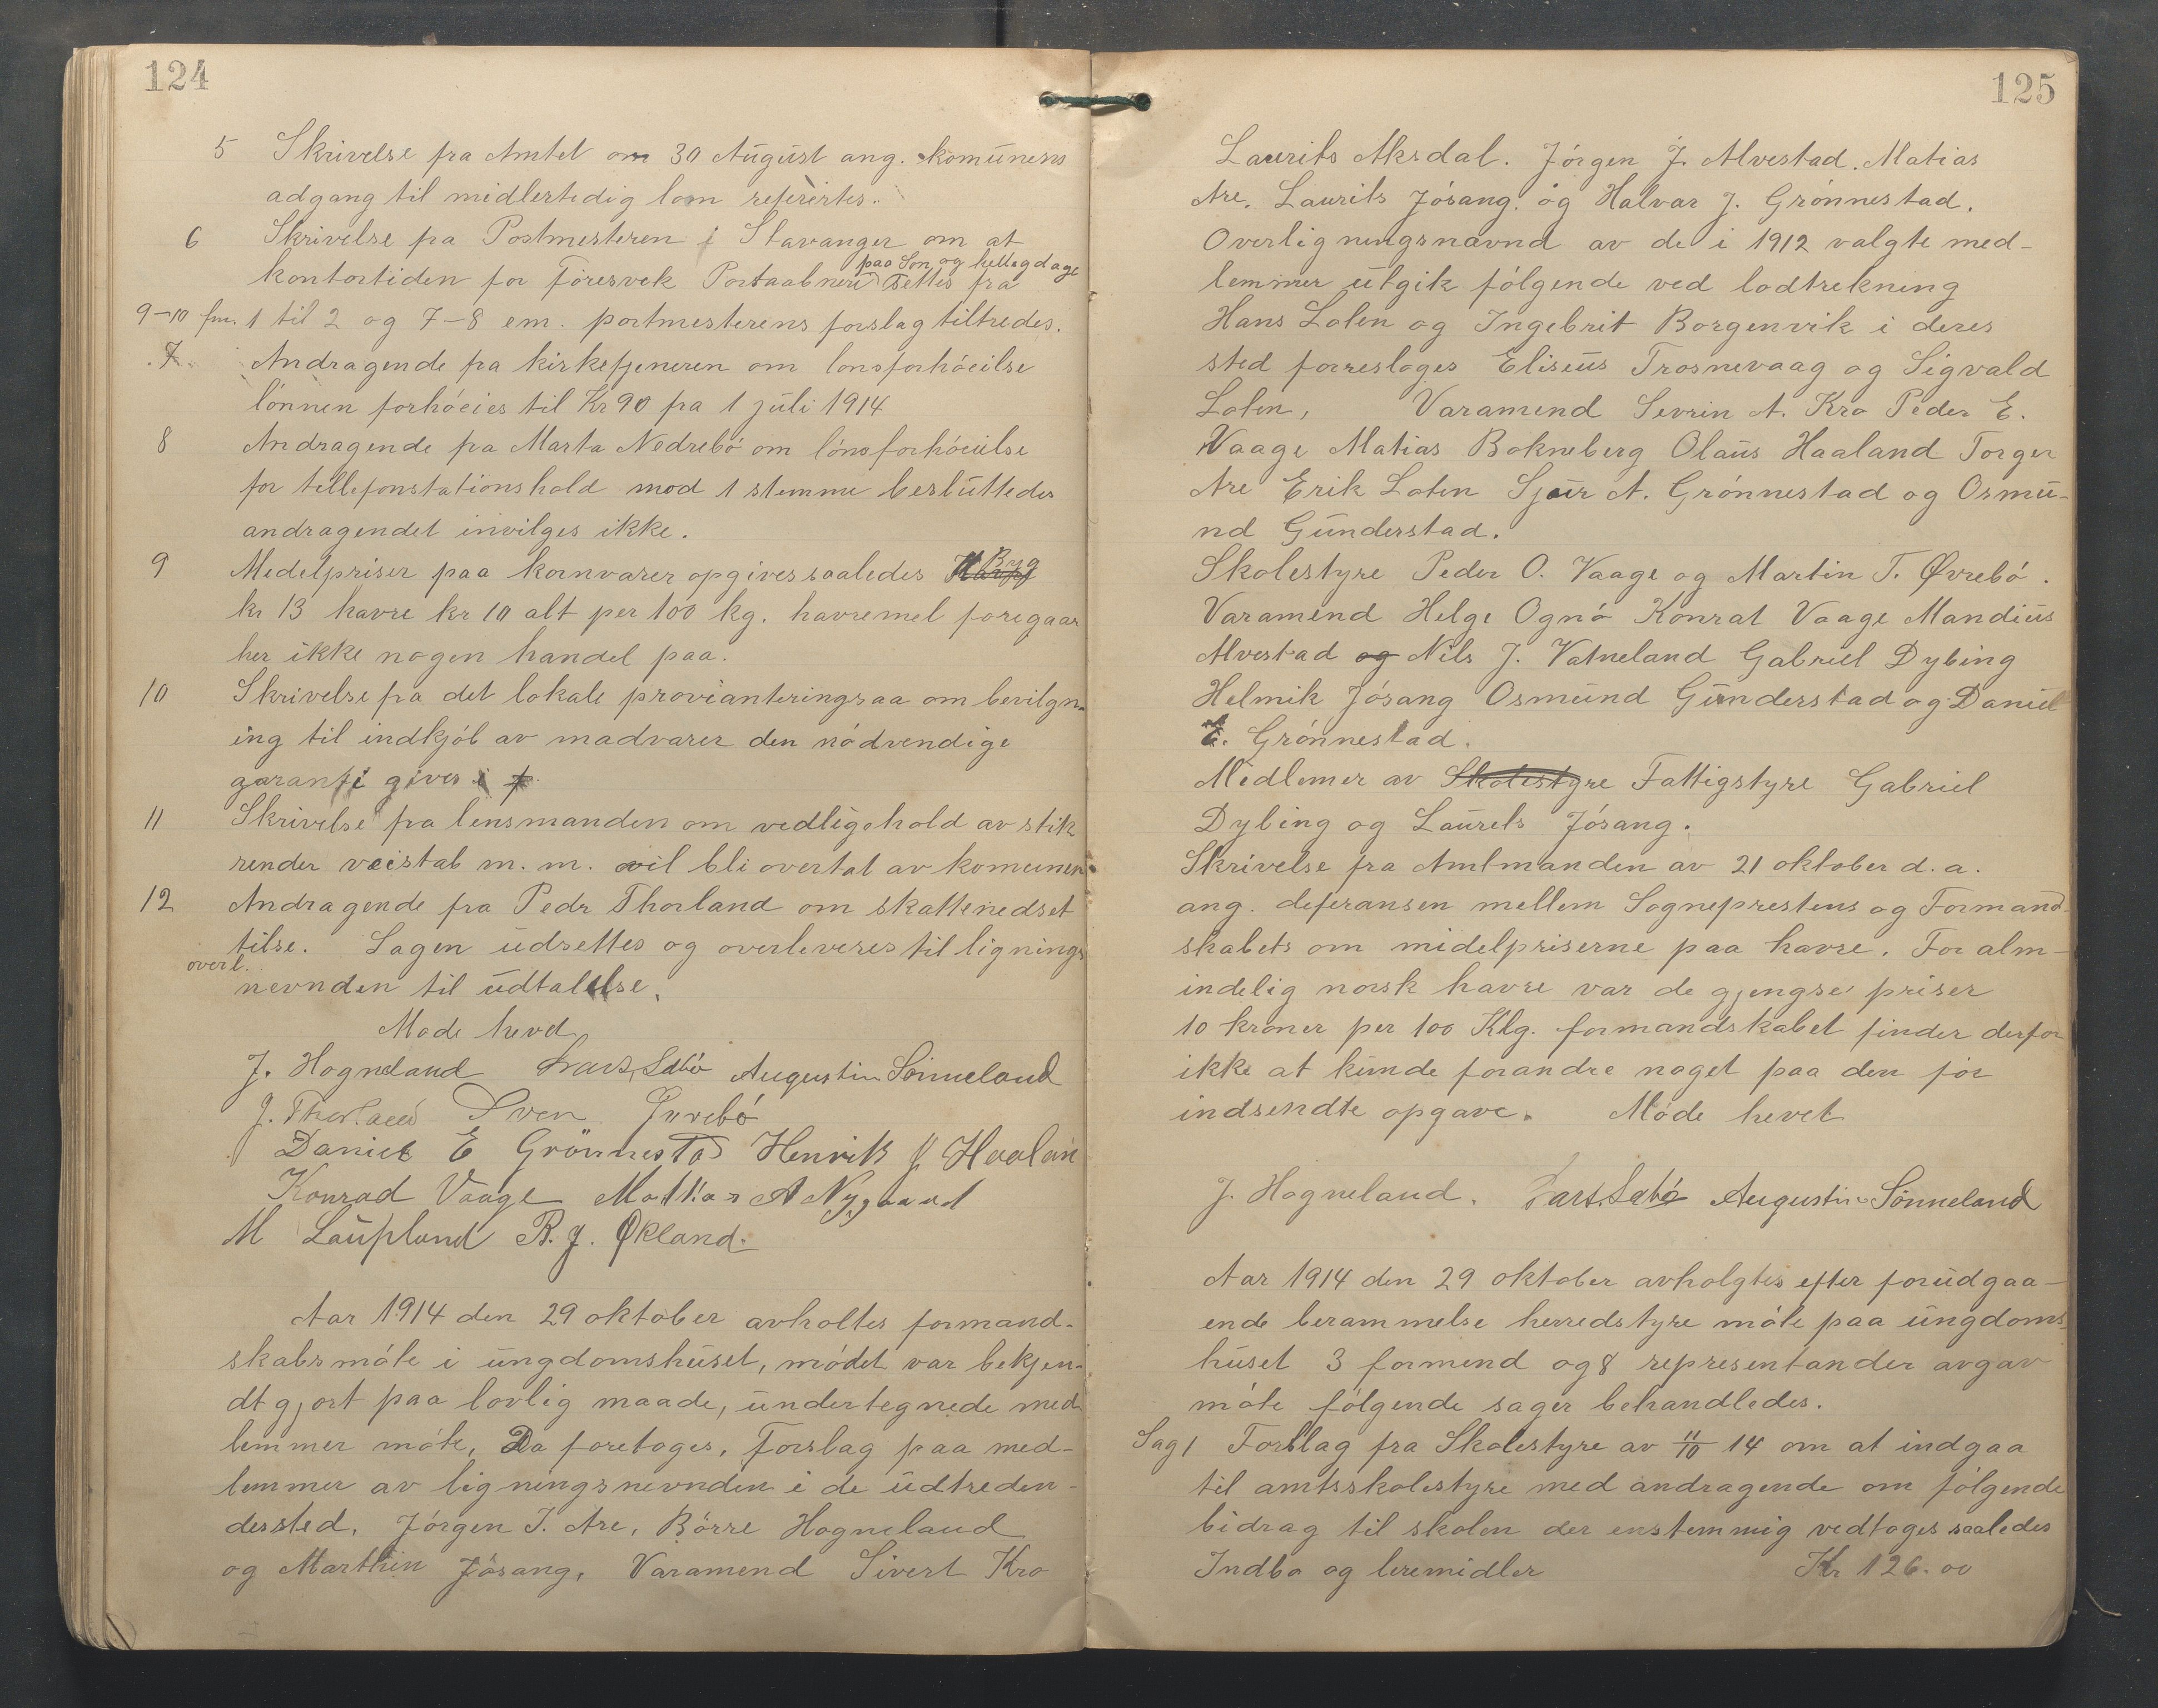 124
5 Skrivelse fra Amtet om 30 August ang. komunens
adgang til midlertidig laan refereertes.
6 Skrivelse fra Postmesteren i Stavanger om at
paa Søn og hellegdage
kontortiden for Føresvek Postaabneri settes fra
9-10 fm. 1 til 2 og 7-8 em. postmesterens forslag tiltredes.
7 Andragende fra kirketjeneren om lønsforhøeilse
lønnen forhøeies til Kr 90 fra 1 juli 1914
8 Andragende fra Marta Nedrebø om lønsforhøeielse
for tellefonstationshold mod 1 stemme besluttedes
andragendet invilges ikke.
9 Medelpriser paa kornvarer opgives saaledes Byg
kr 13 havre kr 10 alt per 100 kg. havremel foregaar
her ikke nogen handel paa.
10 Skrivelse fra det lokale provianteringsaa om bevilgn-
ing til indkjøb av madvarer den nødvendige
garanti gives
11 Skrivelse fra lensmanden om vedligehold av stik
render veistab m. m. vil bli overtat av komunen
12 Andragende fra Pedr Thorland om skattenedset
tilse. Sagen udsettes og overleveres til lignings
overl.
nevnden til udtalelse.
Møde hevd
J. Hogneland Lars Sebø Augustin Sønneland
J. Thorland Sven Øvrebø
Daniel E Grönnestad Henrik J Haaland
Konrad Vaage Mattias A Nygaard
M Laupland B. J. Økland.
Aar 1914 den 29 oktober avholtes formand-
skabsmøte i ungdomshuset, mødet var bekjen-
dtgjort paa lovlig maade, undertegnede med
lemmer møte, Da foretoges, Forslag paa med-
lemmer av ligningsnevnden i de udtreden-
dessted, Jørgen J. Are, Børre Hogneland
og Marthin Jøsang, Varamend Sivert Kro
125
Laurits Aksdal. Jørgen J. Alvestad. Matias
Are. Laurits Jøsang. og Halvar J. Grønnestad.
Overligningsnavnd av de i 1912 valgte med-
lemmer utgik følgende ved lodtrekning
Hans Loten og Ingebrit Borgenvik i deres
sted forresloges Eliseus Trosnevaag og Sigvald
Loten, Varamend Sevrin A. Kro Peder E.
Vaage Matias Bokneberg Olaus Haaland Torger
Are Erik Loten Sjur A. Grønnestad og Osmu-
nd Gunderstad.
Skolestyre Peder O. Vaage og Martin T. Øvrebø.
Varamend Helge Ognø Konrat Vaage Mandius
Alvestad og Nils J. Vatneland Gabriel Dybing
Helmik Jøsang Osmund Gunderstad og Daniel
E. Grønnestad.
Medlemer av Skolestyre Fattigstyre Gabriel
Dybing og Laurets Jøsang.
Skrivelse fra Amtmanden av 21 oktober d. a.
ang. deferansen mellem Sogneprestens og Formand-
skabets om midelpriserne paa havre. For alm-
indelig norsk havre var de gjengse priser
10 kroner per 100 Klg. formandskabet finder derfor
ikke at kunde forandre noget paa den før
indsendte opgave. Møde hevet
J. Hogneland. Lars Sebø Augustin Sønneland
Aar 1914 den 29 oktober avholgtes efter forudgaa-
ende berammelse herredstyre møte paa ungdoms-
huset 3 formend og 8 representander avgav
møte følgende sager behandledes.
Sag 1 Forslag fra Skolestyre av 11/10 14 om at indgaa
til amtsskolestyre med andragende om følgende
bidrag til skolen der enstemmig vedtoges saaledes
Indbo og leremidler Kr 126.00